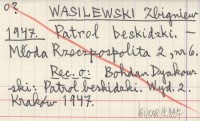 03
WASILEWSKI Zbigniew
1947. Patrol beskidzki. —
Młoda Rzeczpospolita 2, nr 6.
Rec. o: Bohdan Dyakow-
ski: Patrol beskidzki. Wyd. 2.
Kraków 1947.